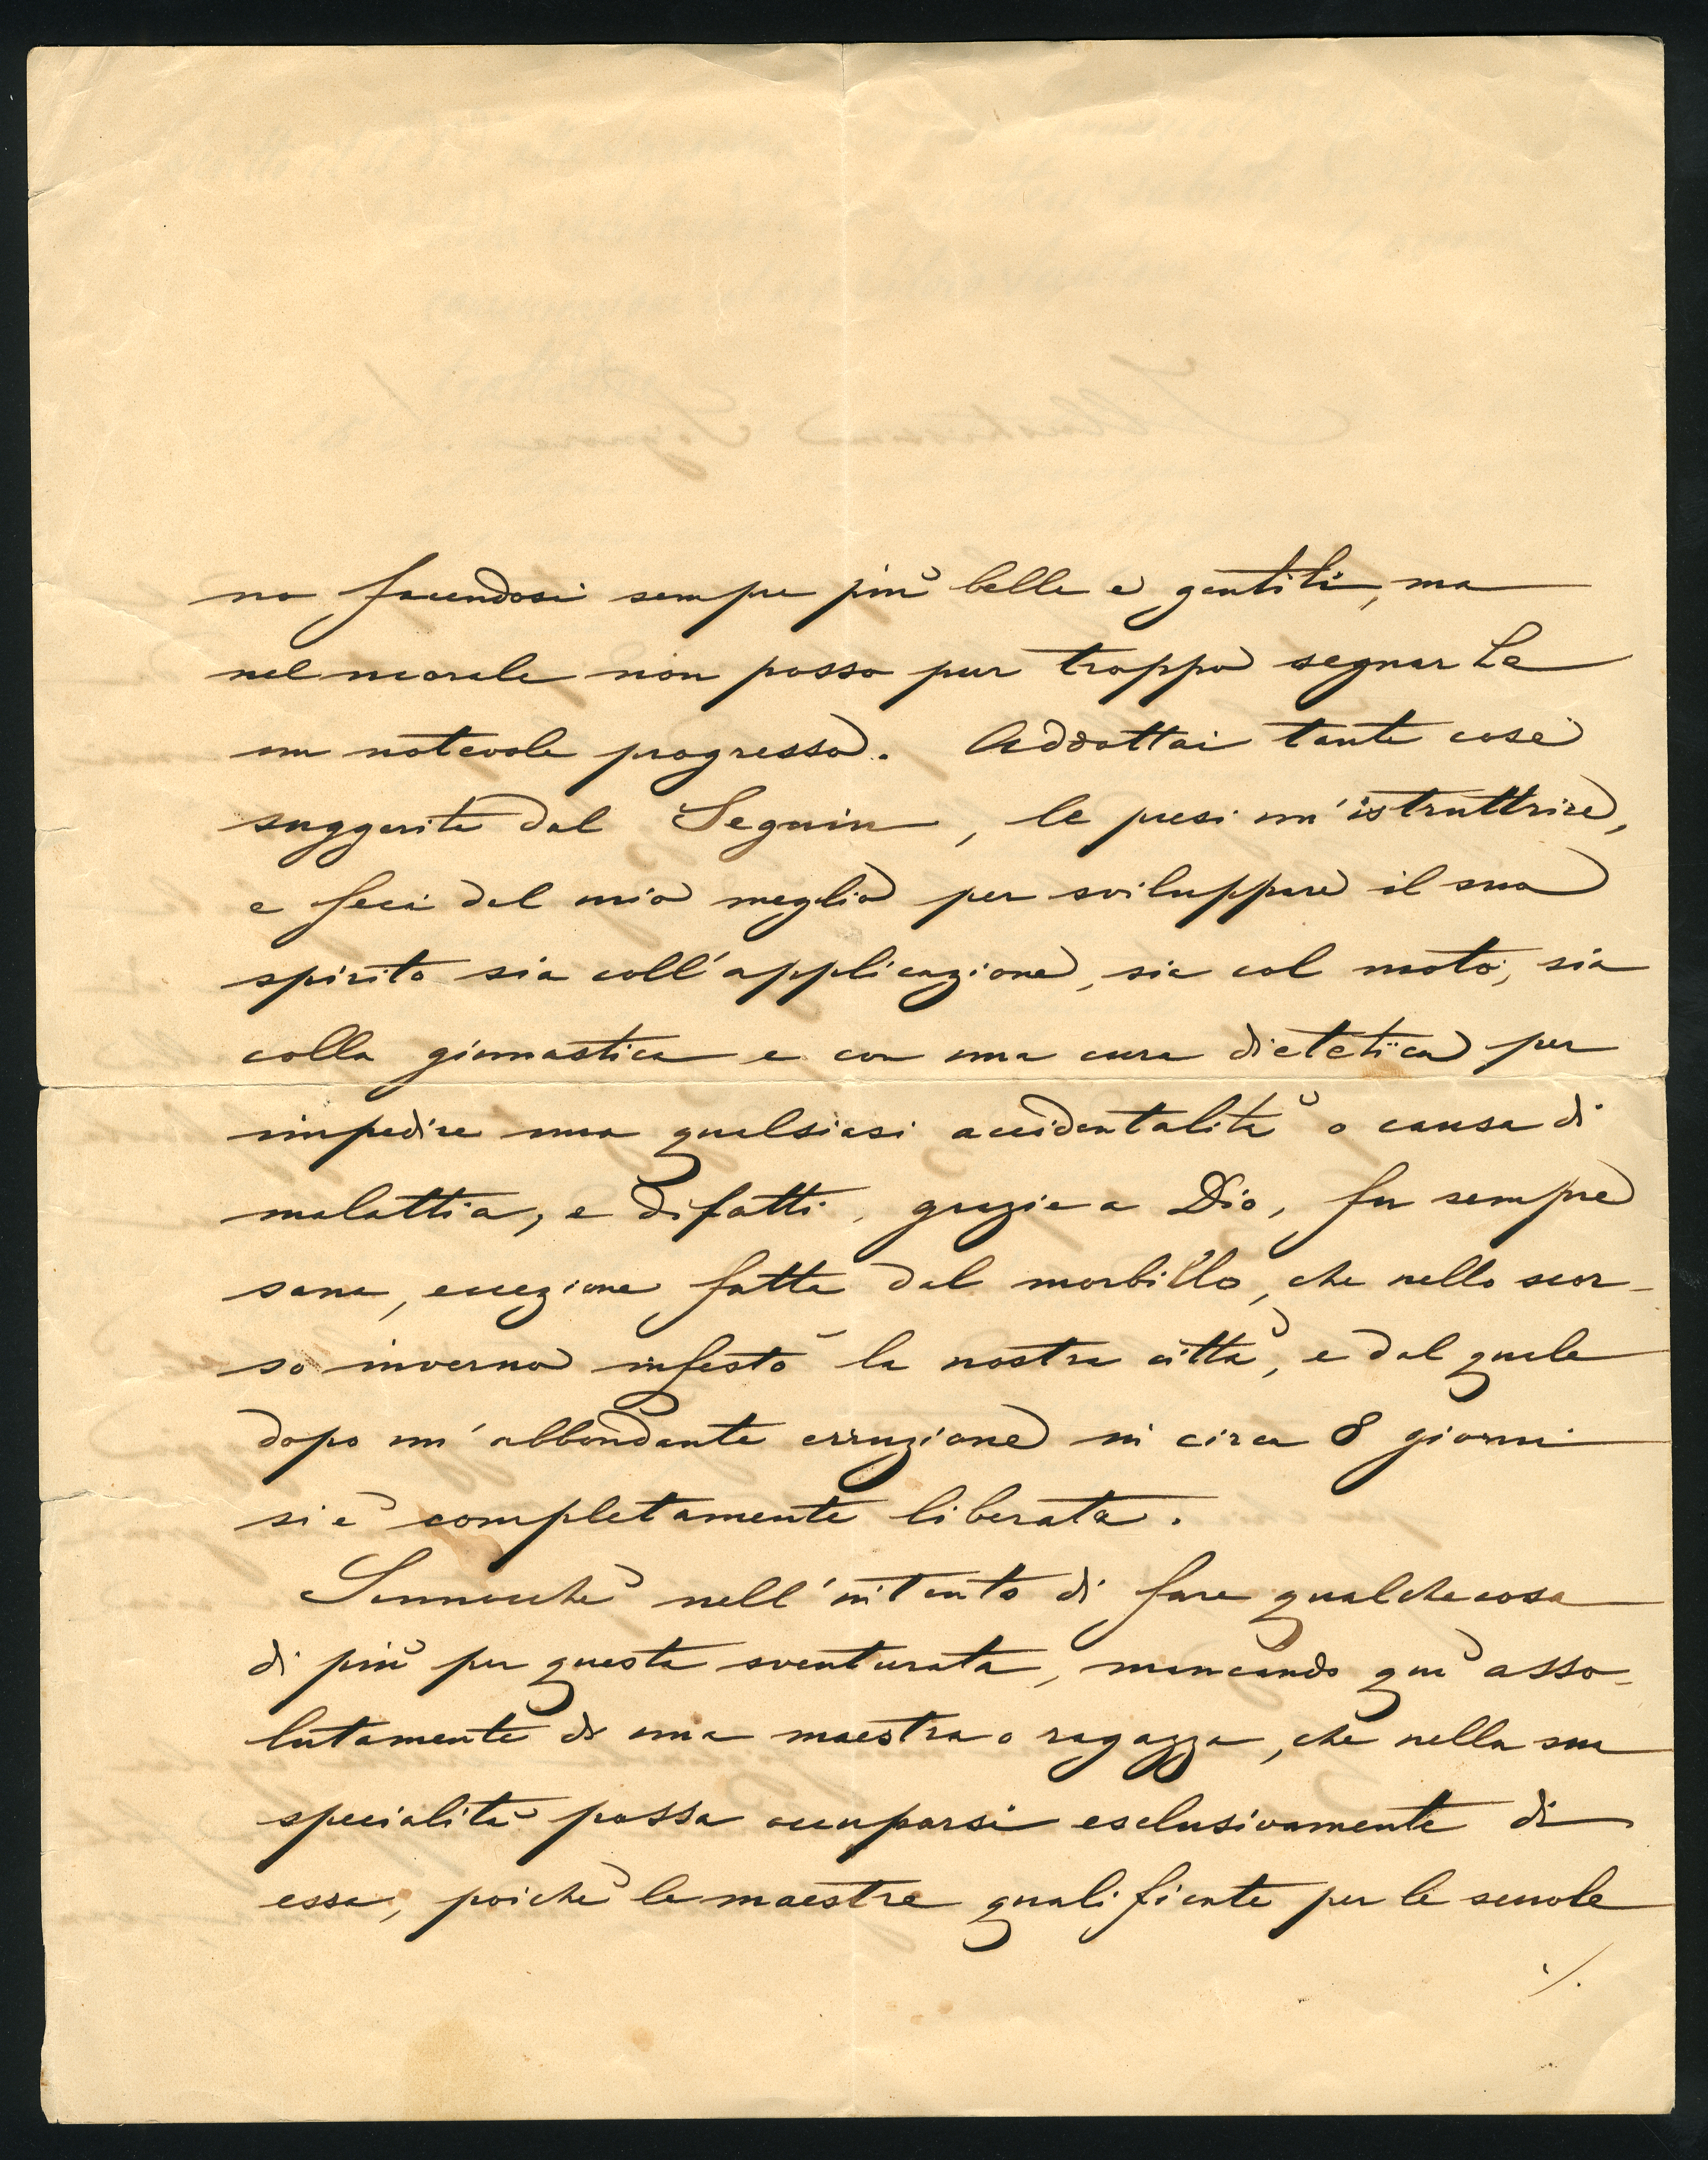 no facendosi sempre più belle e gentili, ma
nel morale non posso pur troppo segnarLe
un notevole progresso. Addottai tante cose
suggerite dal Seguin, le presi un'istruttrice,
e feci del mio meglio per sviluppare il suo
spirito sia coll'applicazione, sia col moto, sia
colla ginnastica e con una cura dietetica per
impedire una qualsiasi accidentalità o causa di
malattia, e difatti, grazie a Dio, fu sempre
sana, eccezione fatta dal morbillo, che nello scor-
so inverno infestò la nostra città, e dal quale
dopo un'abbondante erruzione in circa 8 giorni
si è completamente liberata.
Sennonchè nell'intento di fare qualchecosa
di più per questa sventurata, mancando quì asso-
lutamente di una maestra o ragazza, che nella sua
specialità possa occuparsi esclusivamente di
essa, poichè le maestre qualificate per le scuole
./.